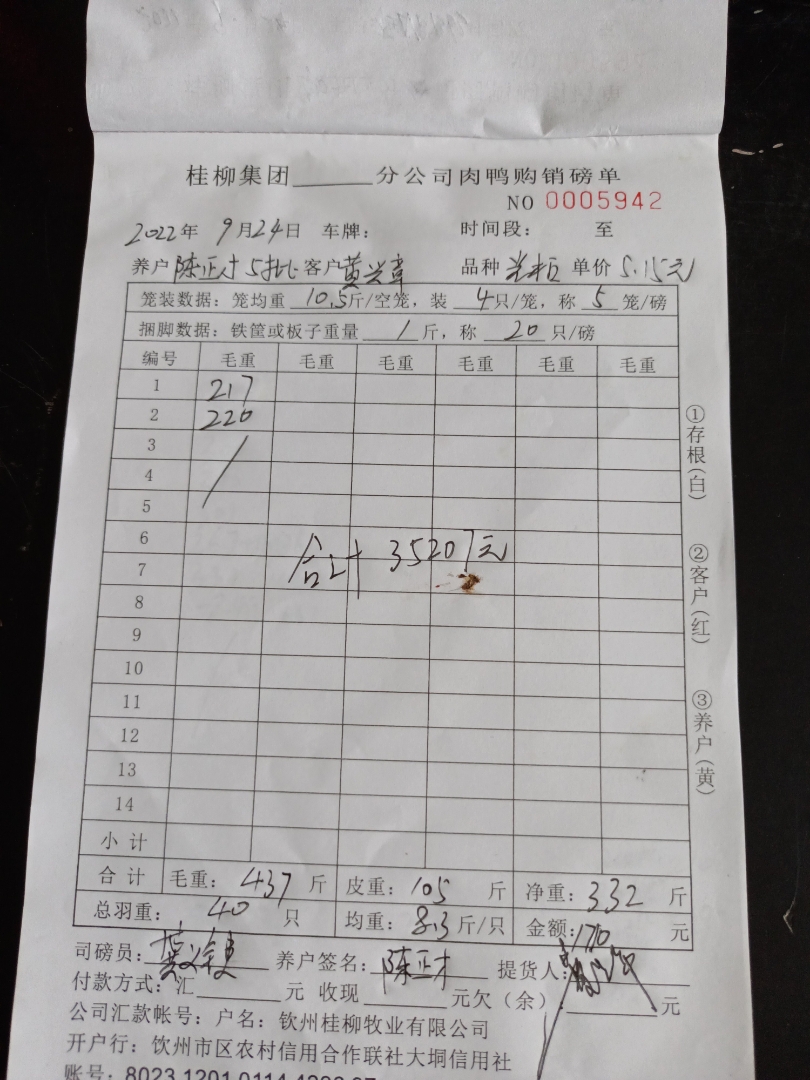 桂柳集团______分公司肉鸭购销磅单
NO 0005942
2022年 9月24日 车牌： 时间段： 至
养户 陈正才 5批 客户 黄兴章 品种 单价 5.15元
笼装数据：笼均重 10.5斤/空笼，装 4只/笼，称 5 笼/磅
捆脚数据：铁筐或板子重量 1 斤，称 20 只/磅
编号 毛重 毛重 毛重 毛重 毛重 毛重
1 217
2 220
3
4
5
6
合计 35207元
7
8
9
10
11
12
13
14
小计
合计 毛重：437斤 皮重：105斤 净重：332斤
总羽重：40只 均重：8.3斤/只 金额：1710元
司磅员： 养户签名：陈正才 提货人：
付款方式：汇______元 收现______元欠（余）：______元
公司汇款帐号：户名：钦州桂柳牧业有限公司
开户行：钦州市区农村信用合作联社大垌信用社
账号：8023 1201 0114
①存根（白）
②客户（红）
③养户（黄）